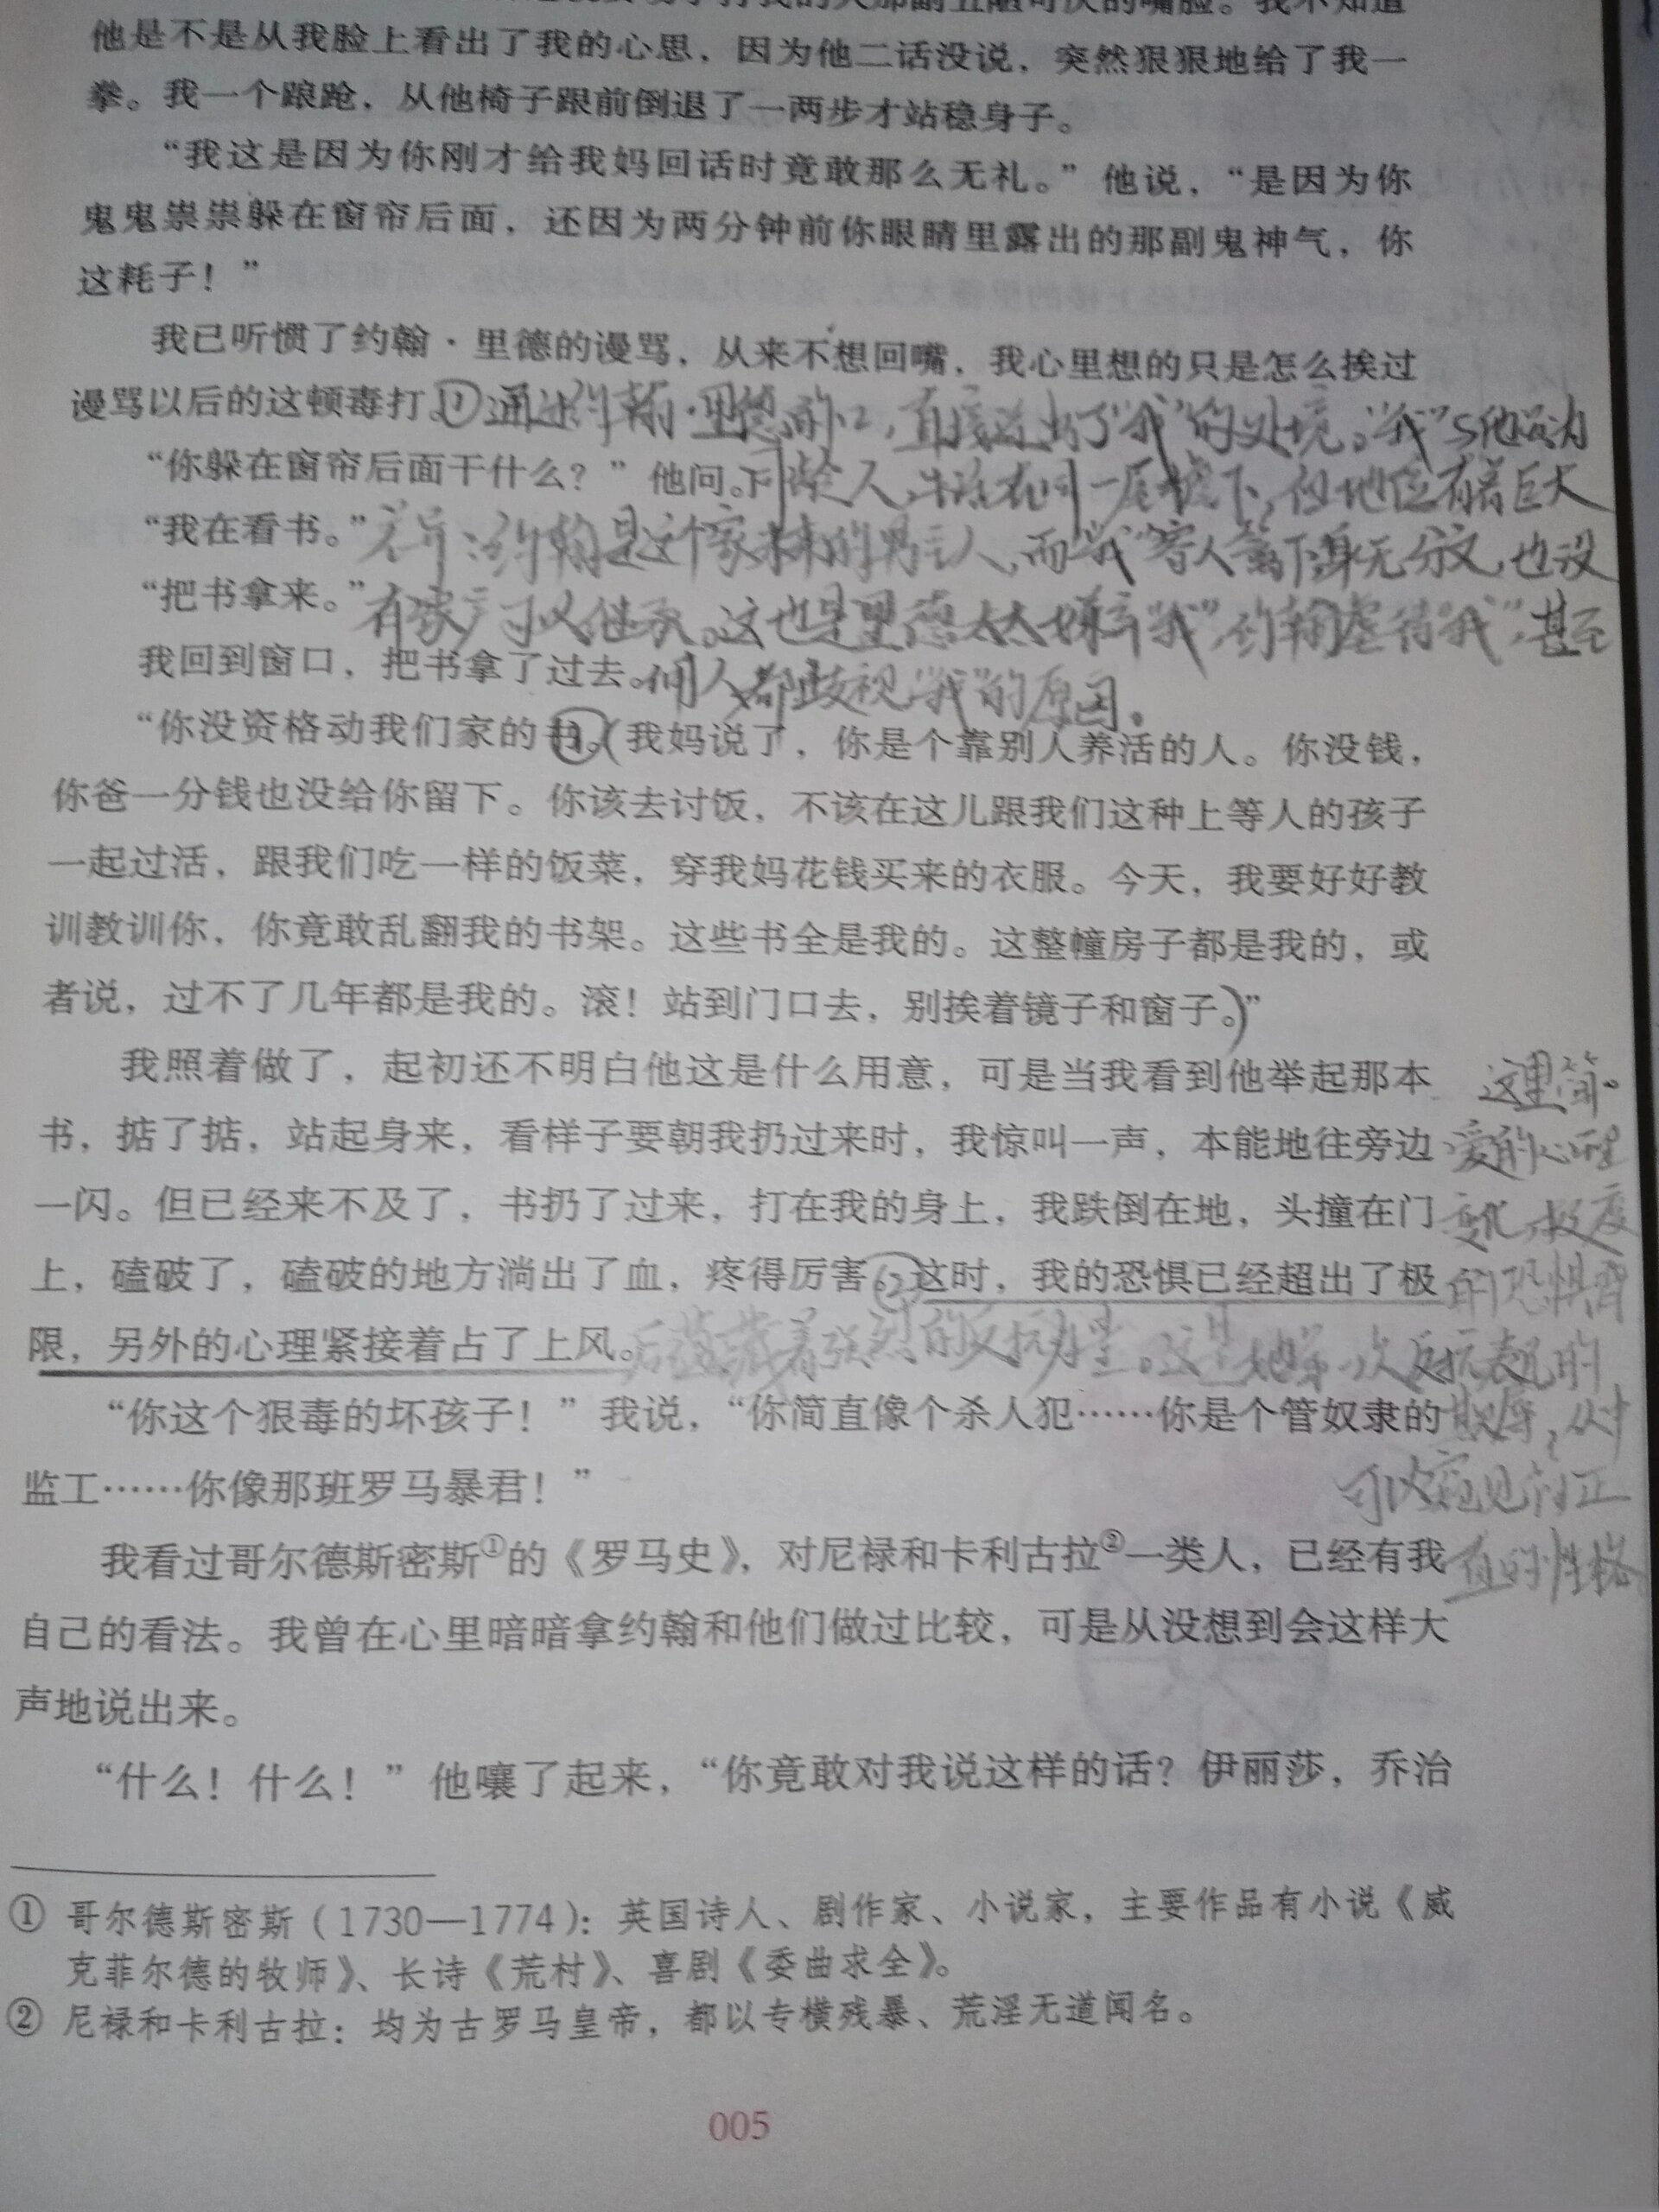 他是不是从我脸上看出了我的心思，因为他二话没说，突然狠狠地给了我一
拳。我一个踉跄，从他椅子跟前倒退了一两步才站稳身子。
“我这是因为你刚才给我妈回话时竟敢那么无礼。”他说，“是因为你
鬼鬼祟祟躲在窗帘后面，还因为两分钟前你眼睛里露出的那副鬼神气，你
这耗子！”
我已听惯了约翰·里德的谩骂，从来不想回嘴，我心里想的只是怎么挨过
谩骂以后的这顿毒打。①通过约翰·里德的口，直接道出了“我”的处境。“我”与他
“你躲在窗帘后面干什么？”他问。同龄人，生活在同一屋檐下，但地位有着巨大
“我在看书。”差异：约翰是这个家未来的男主人，而“我”寄人篱下身无分文，也没
“把书拿来。”有家产可以继承。这也是里德太太嫌弃“我”，约翰虐待“我”，甚至
我回到窗口，把书拿了过去。佣人都歧视“我”的原因。
“你没资格动我们家的书。①（我妈说了，你是个靠别人养活的人。你没钱，
你爸一分钱也没给你留下。你该去讨饭，不该在这儿跟我们这种上等人的孩子
一起过活，跟我们吃一样的饭菜，穿我妈花钱买来的衣服。今天，我要好好教
训教训你，你竟敢乱翻我的书架。这些书全是我的。这整幢房子都是我的，或
者说，过不了几年都是我的。滚！站到门口去，别挨着镜子和窗子。）”
我照着做了，起初还不明白他这是什么用意，可是当我看到他举起那本 这里简·
书，掂了掂，站起身来，看样子要朝我扔过来时，我惊叫一声，本能地往旁边 爱的心理
一闪。但已经来不及了，书扔了过来，打在我的身上，我跌倒在地，头撞在门 变化，极度
上，磕破了，磕破的地方淌出了血，疼得厉害②这时，我的恐惧已经超出了极 的恐惧背
限，另外的心理紧接着占了上风。后蕴藏着强烈的反抗力量。这是她第一次反抗表兄的
“你这个狠毒的坏孩子！”我说，“你简直像个杀人犯……你是个管奴隶的 欺辱，从中
监工……你像那班罗马暴君！” 可以窥见简正
我看过哥尔德斯密斯①的《罗马史》，对尼禄和卡利古拉②一类人，已经有我 直的性格
自己的看法。我曾在心里暗暗拿约翰和他们做过比较，可是从没想到会这样大
声地说出来。
“什么！什么！”他嚷了起来，“你竟敢对我说这样的话？伊丽莎，乔治
① 哥尔德斯密斯（1730—1774）：英国诗人、剧作家、小说家，主要作品有小说《威
克菲尔德的牧师》、长诗《荒村》、喜剧《委曲求全》。
② 尼禄和卡利古拉：均为古罗马皇帝，都以专横残暴、荒淫无道闻名。
005